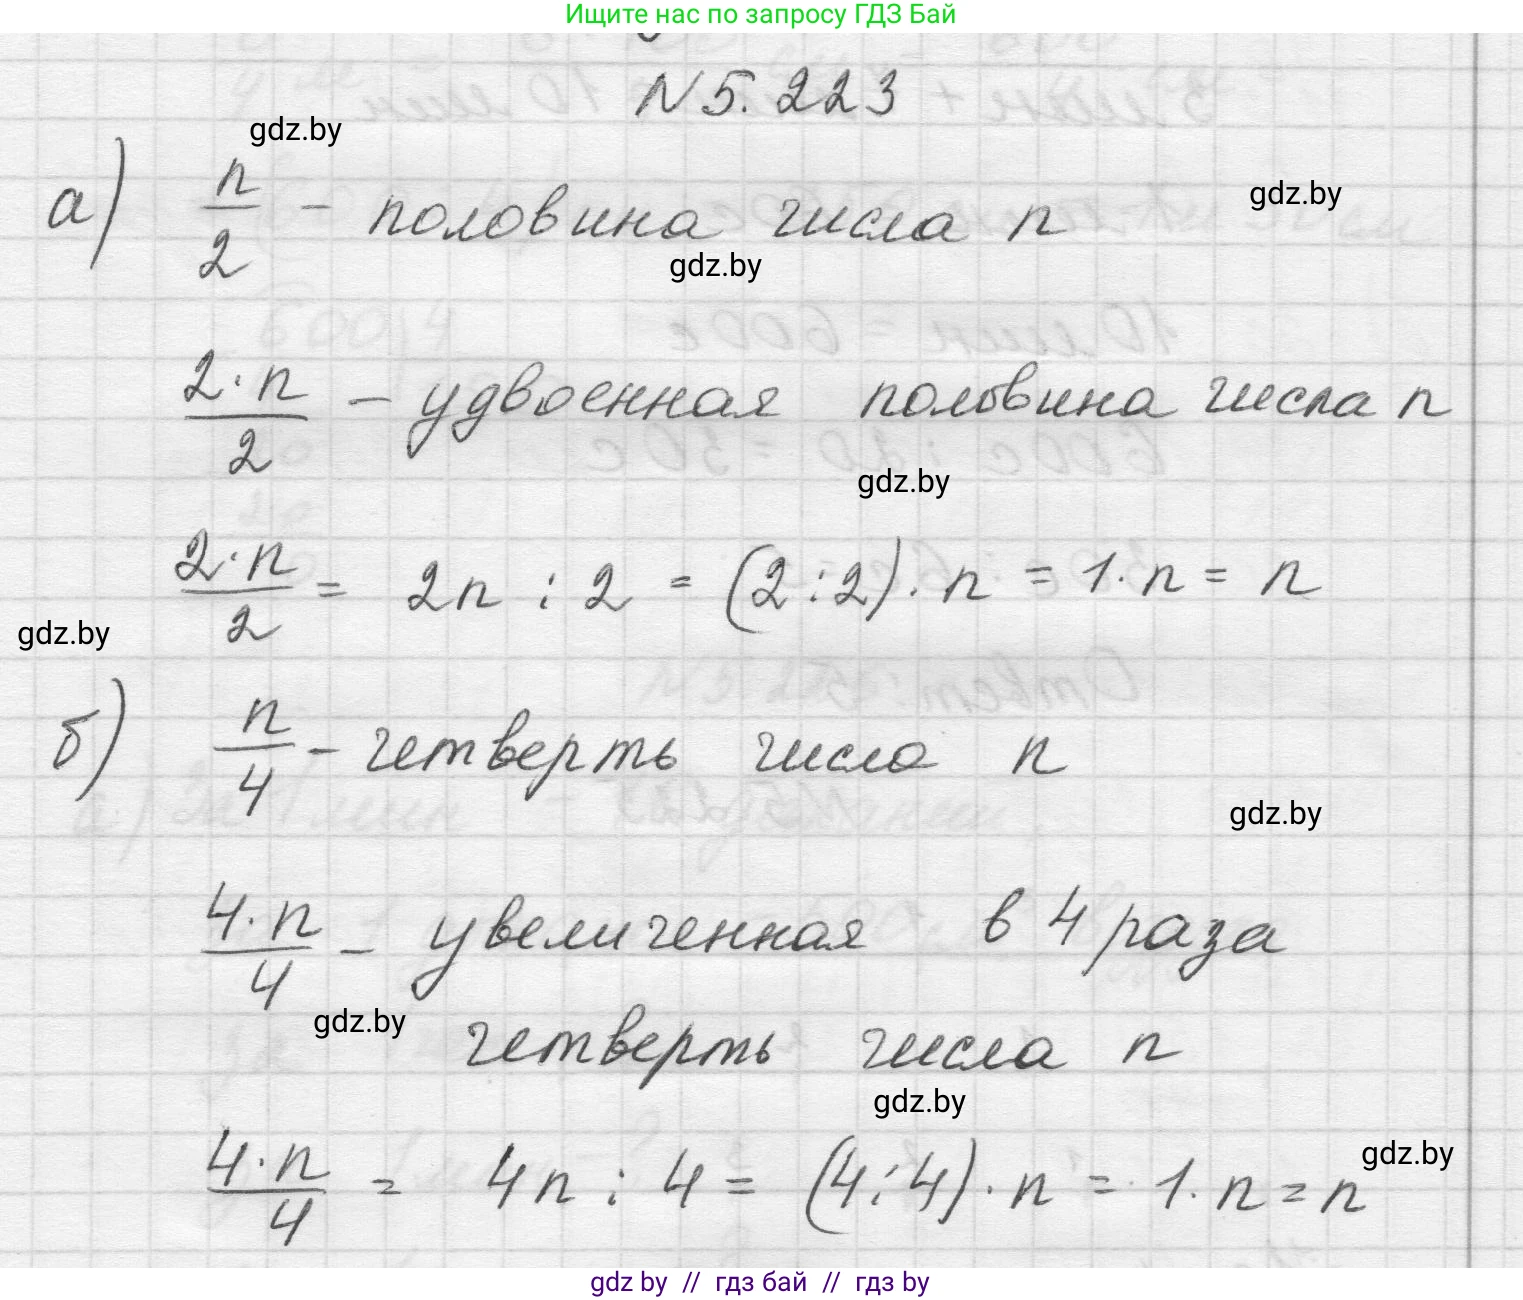 Ищите нас по запросу ГДЗ Бай
N 5.223
gdz.by
а) n/2 - половина числа n
gdz.by
gdz.by
2·n/2 - удвоенная половина числа n
gdz.by
2·n/2 = 2n : 2 = (2:2)·n = 1·n = n
gdz.by
б) n/4 - четверть числа n
gdz.by
4·n/4 - увеличенная в 4 раза
gdz.by
четверть числа n
gdz.by
gdz.by
4·n/4 = 4n : 4 = (4:4)·n = 1·n = n
gdz by // гдз бай // гдз by